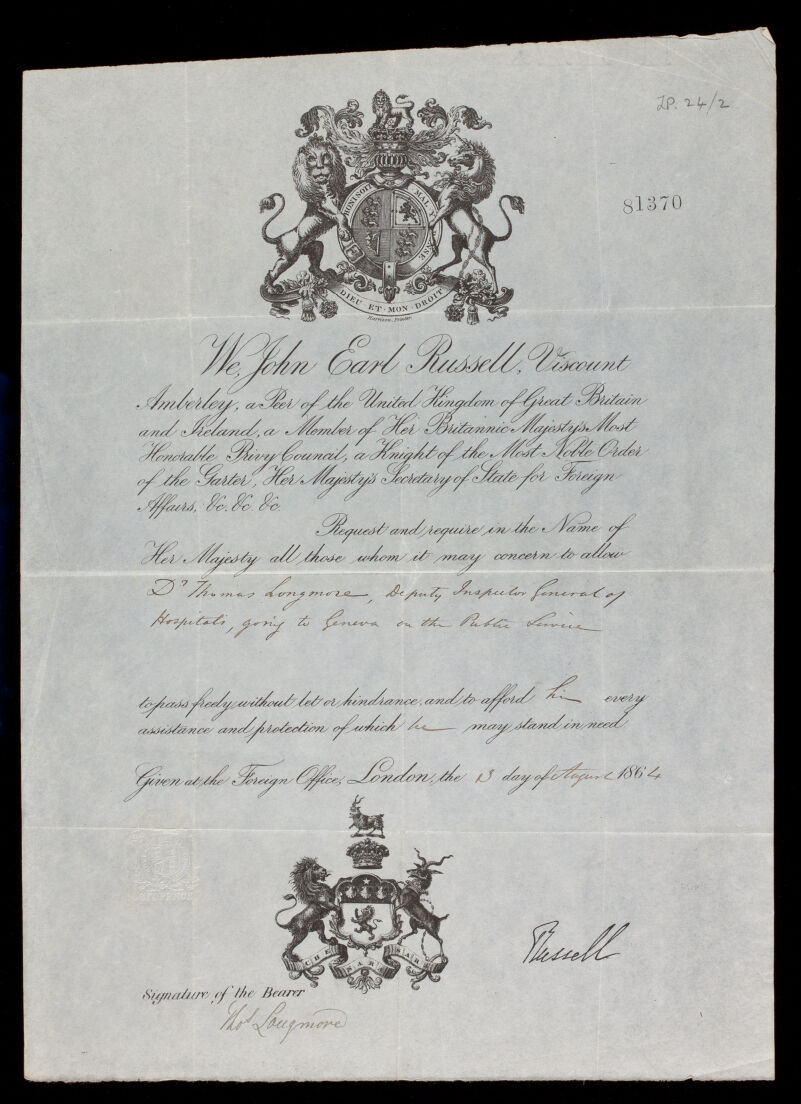 LP. 24/2
81370
HONI SOIT MAL Y
DIEU ET MON DROIT
Harrison, Printer.
We, John Earl Russell, Viscount
Amberley, a Peer of the United Kingdom of Great Britain
and Ireland, a Member of Her Britannic Majesty's Most
Honorable Privy Council, a Knight of the Most Noble Order
of the Garter, Her Majesty's Secretary of State for Foreign
Affairs, &c. &c. &c.
Request and require in the Name of
Her Majesty all those whom it may concern to allow
Dr Thomas Longmore, Deputy Inspector General of
Hospitals, going to Geneva on the Public Service
to pass freely without let or hindrance, and to afford him every
assistance and protection of which he may stand in need
Given at the Foreign Office, London, the 13 day of August 1864
CHE SARA SARA
Russell
Signature of the Bearer
Thos Longmore